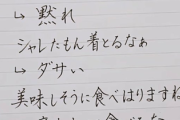 ↳ 黙れ
シャレたもん着とるなぁ
↳ ダサい
美味しそうに食べはりますね